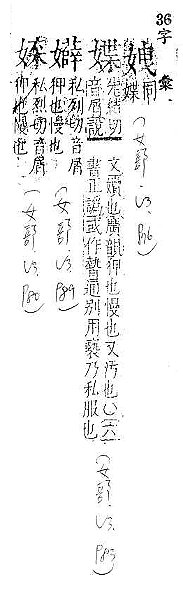 36
字彙
同媟
(女部. V3. P86)
媟
先結切
音屑說
文嬻也廣韻狎也慢也又汚也○六
書正譌或作暬通別用褻乃私服也
(女部. V3. P85)
私列切音屑
狎也慢也
(女部. V3. P89)
私列切音屑
狎也慢也
(女部. V3. P80)